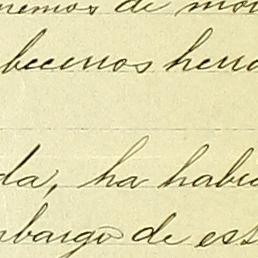 nemos de mo
becenos hen
da, ha habi
mbargo de est